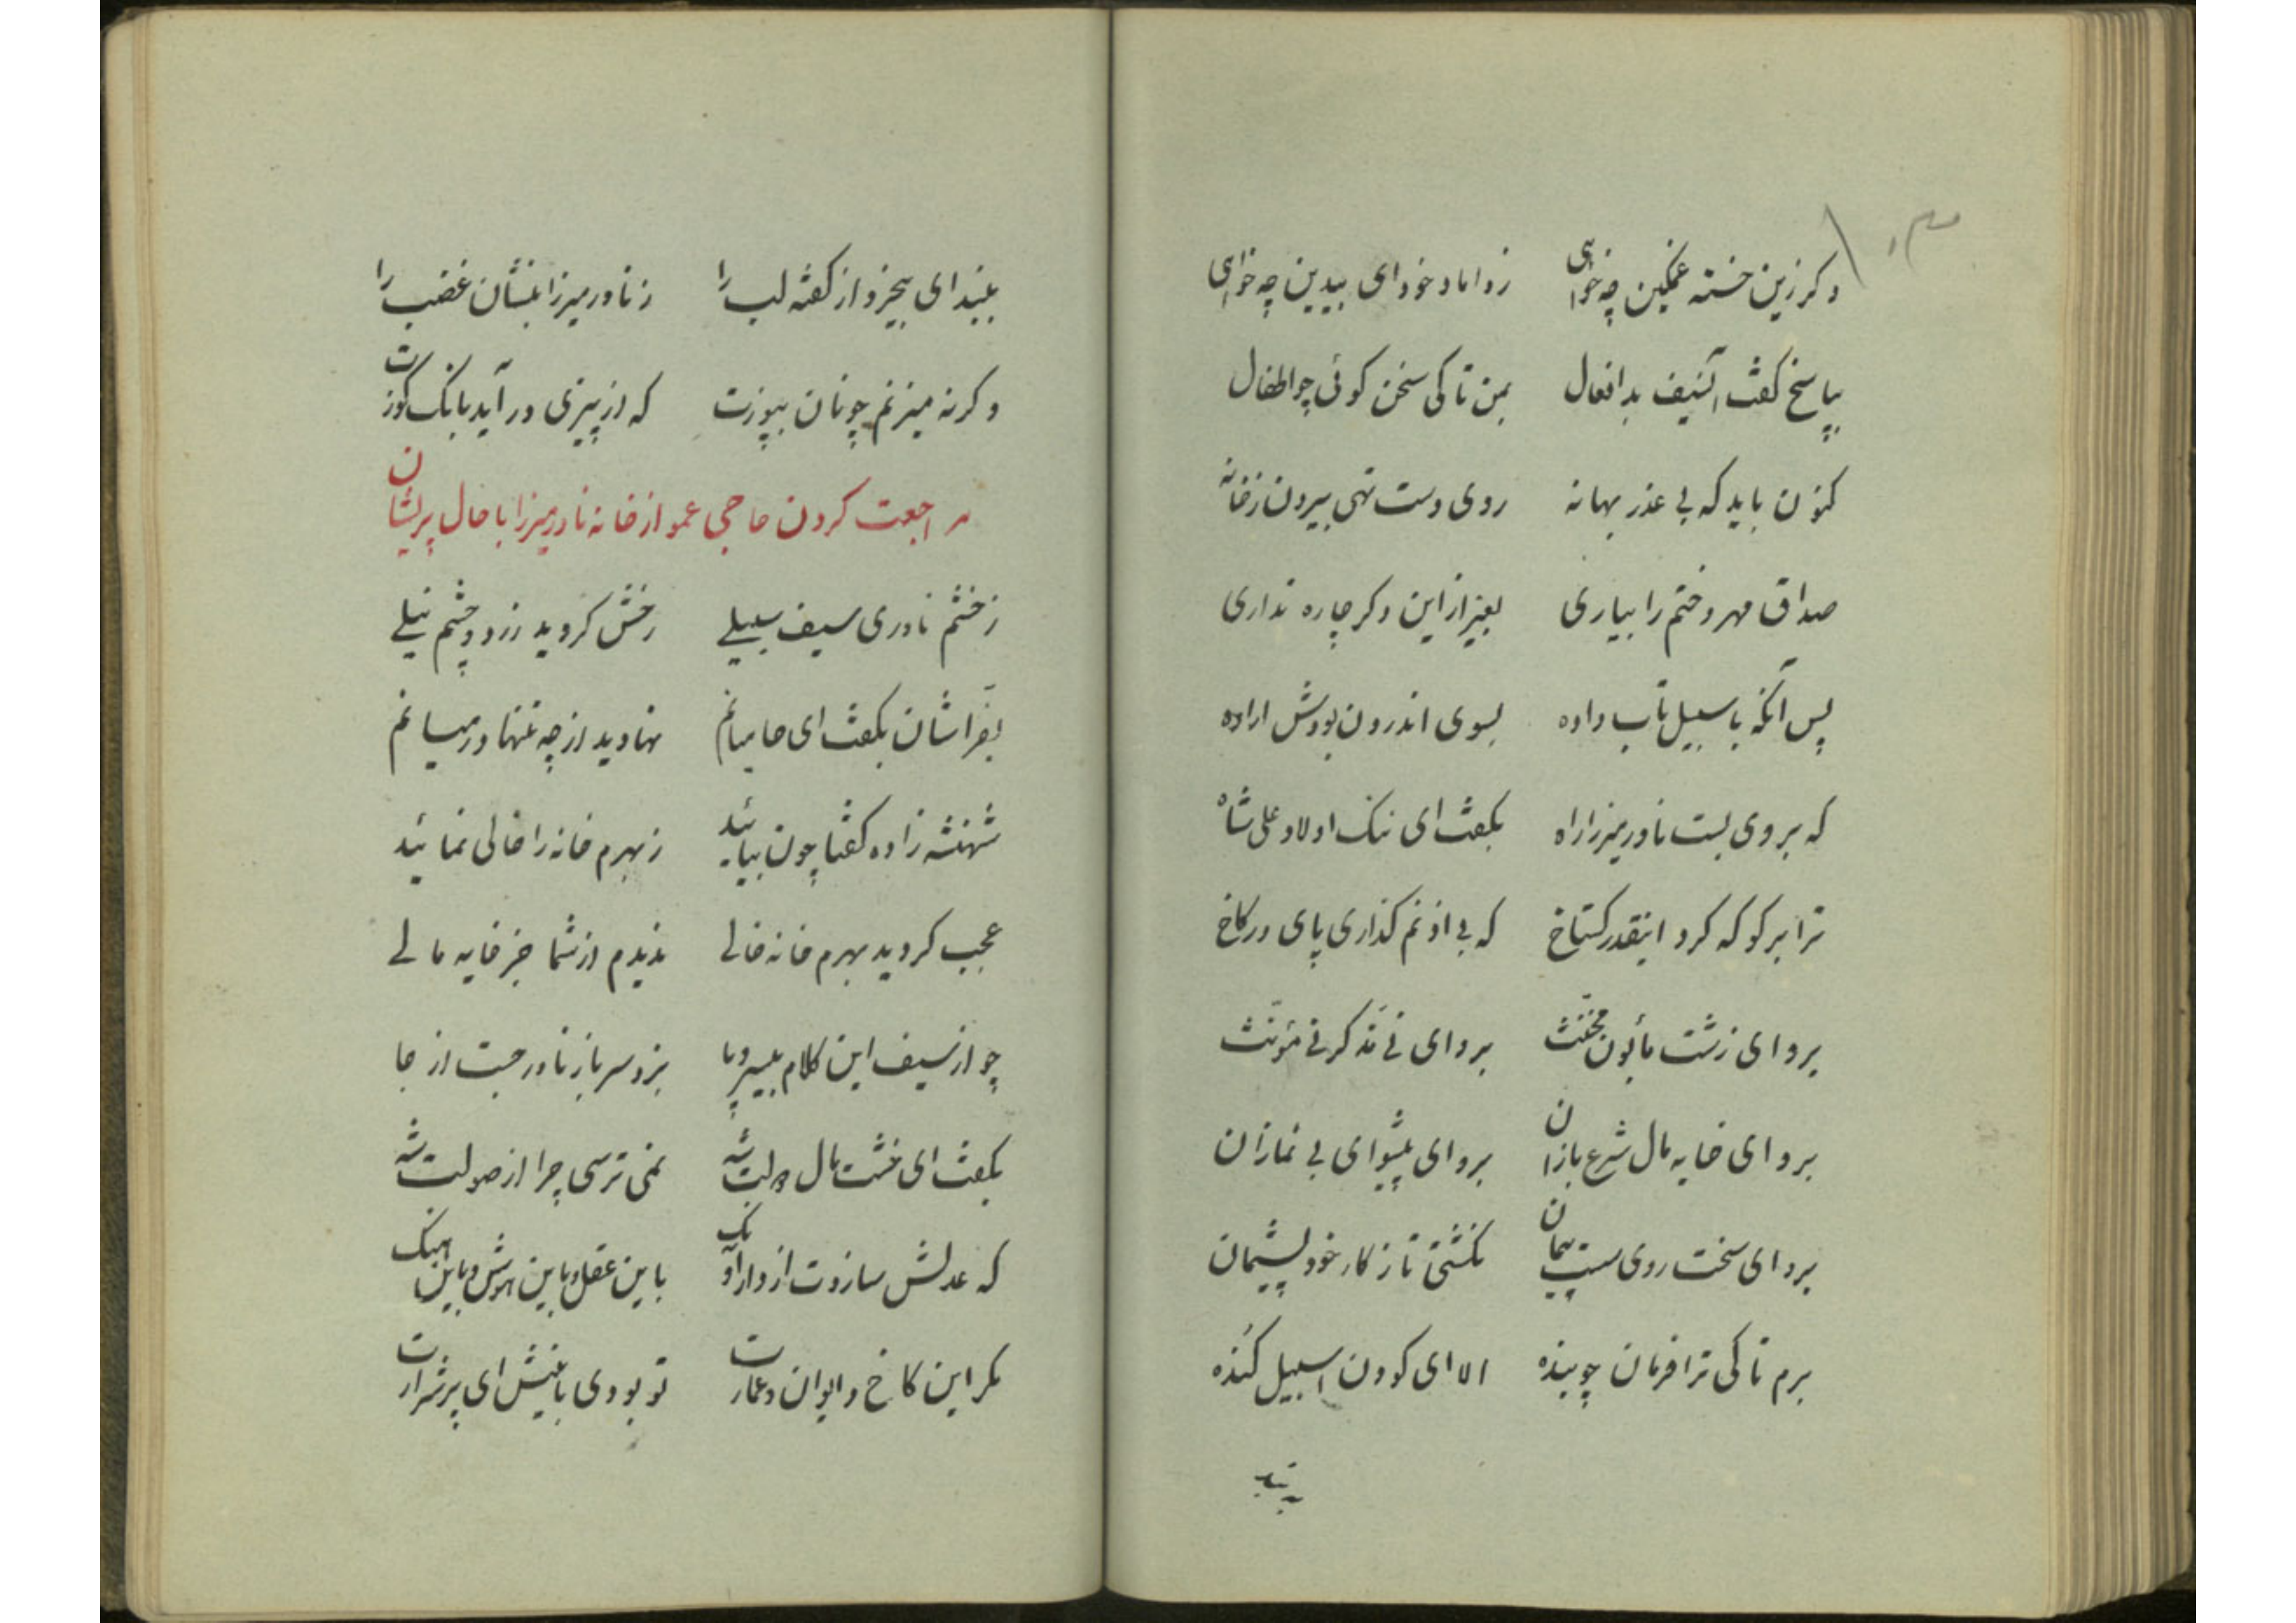 دکر زین خستهٔ غمکین چه خواهی    ز داماد خود ای بیدین چه خواهی
بپاسخ کفت آنسیف بد افعال    بمن تا کی سخن کوئی چو اطفال
کنون باید که بی عذر بهانه    روی دست تهی بیرون ز خانه
صداق مهر دختم را بیاری    بغیر از این دکر چاره نداری
پس آنکه با سبیل تاب داده    بسوی اندرون بودش اراده
که بر وی بست نادر میرزا راه    بکفت ای ننک اولاد علی شاه
ترا بر کو که کرد اینقدر کستاخ    که بی اذنم کذاری پای در کاخ
برو ای زشت مأبون مخنث    برو ای نی مذکر نی مؤنث
برو ای خایه مال شرع بازان    برو ای پیشوای بی نمازان
برو ای سخت روی سست پیمان    نکشتی تا ز کار خود پشیمان
برم تا کی ترا فرمان چو بنده    الا ای کودن اسبیل کنده
ببند
ببند ای بیخرد از کفته لب را    ز نادر میرزا بنشان غضب را
وکرنه میزنم چونان بپوزت    که از پیزی در آید بانک کوزت
مراجعت کردن حاجی عمو از خانه نادر میرزا با حال پریشان
ز خشم نادری سیف سبیلی    رخش کردید زرد و چشم نیلی
بفرّاشان بکفت ای حامیانم    نهادید از چه تنها در میانم
شهنشه زاده کفتا چون بیائید    ز بهرم خانه را خالی نمائید
عجب کردید بهرم خانه خالی    ندیدم از شما جز خایه مالی
چو از سیف این کلام بیسر و پا    بزد سرباز نادر جست از جا
بکفت ای خشت مال دولت شه    نمی ترسی چرا از صولت شه
که عدلش سازدت از دار آونک    باین عقل و باین هوش و باین هنک
مکر این کاخ و ایوان و عمارت    تو بودی بانیش ای پر شرارت